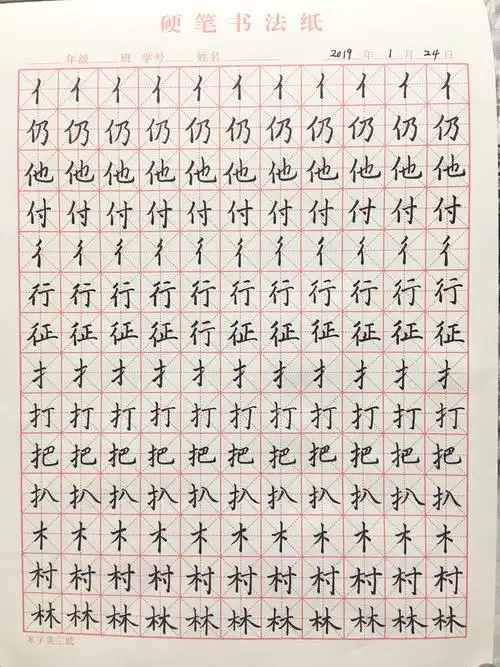 硬笔书法纸
年级 班 学号 姓名 2019 年 1 月 24 日
亻亻亻亻亻亻亻亻亻亻亻
仍仍仍仍仍仍仍仍仍仍仍
他他他他他他他他他他他
付付付付付付付付付付付
彳彳彳彳彳彳彳彳彳彳彳
行行行行行行行行行行行
征征征征行征征征征征征
扌扌扌扌扌扌扌扌扌扌扌
打打打打打打打打打打打
把把把把把把把把把把把
扒扒扒扒扒扒扒扒扒扒扒
木木木木木木木木木木木
村村村村村村村村村村村
林林林林林林林林林林林
米字美工纸